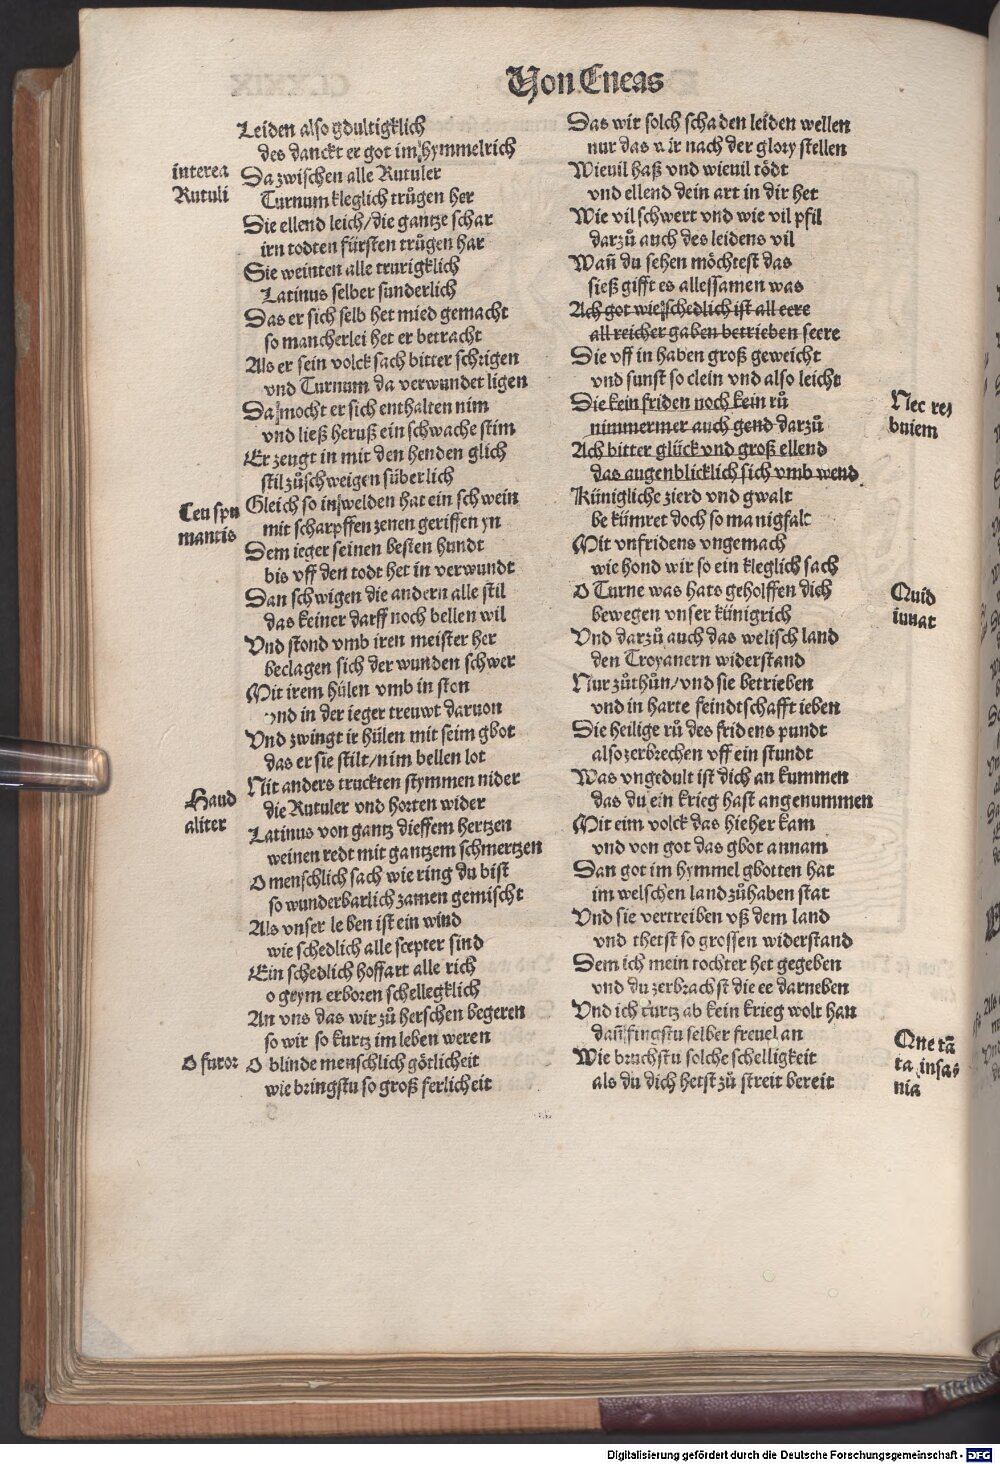 Von Eneas
Leiden also gdultigklich
des danckt er got im hymmelrich
interea
Rutuli
Da zwischen alle Rutuler
Turnum kleglich trůgen her
Sie ellend leich/die gantze schar
irn todten fürsten trůgen har
Sie weinten alle trurigklich
Latinus selber sunderlich
Das er sich selb het mied gemacht
so mancherlei het er betracht
Als er sein volck sach bitter schrigen
vnd Turnum da verwundet ligen
Da mocht er sich enthalten nim
vnd ließ heruß ein schwache stim
Er zeugt in mit den henden glich
stil zůschweigen süberlich
Ceu spu
mantis
Gleich so in welden hat ein schwein
mit scharpffen zenen geriffen yn
Dem ieger seinen besten hundt
bis vff den todt het in verwundt
Dan schwigen die andern alle stil
das keiner darff noch bellen wil
Vnd stond vmb iren meister her
beclagen sich der wunden schwer
Mit irem hülen vmb in ston
vnd in der ieger treuwt daruon
Vnd zwingt ir hülen mit seim gbot
das er sie stilt/nim bellen lot
Haud
aliter
Nit anders truckten stymmen nider
die Rutuler vnd horten wider
Latinus von gantz dieffem hertzen
weinen redt mit gantzem schmertzen
O menschlich sach wie ring du bist
so wunderbarlich zamen gemischt
Als vnser leben ist ein wind
wie schedlich alle scepter sind
Ein schedlich hoffart alle rich
o geym erboren schellegklich
An vns das wir zů herschen begeren
so wir so kurtz im leben weren
O furor
O blinde menschlich götlicheit
wie bringstu so groß ferlicheit
Das wir solch schaden leiden wellen
nur das wir nach der glory stellen
Wieuil haß vnd wieuil tödt
vnd ellend dein art in dir het
Wie vil schwert vnd wie vil pfil
darzů auch des leidens vil
Wañ du sehen möchtest das
sieß gifft es allessamen was
Ach got wie schedlich ist all eere
all reicher gaben betrieben seere
Die vff in haben groß geweicht
vnd sunst so clein vnd also leicht
Nec re
buiem
Die kein friden noch kein rů
nimmermer auch gend darzů
Ach bitter glück vnd groß ellend
das augenblicklich sich vmb wend
Künigliche zierd vnd gwalt
bekümret doch so manigfalt
Mit vnfridens vngemach
wie hond wir so ein kleglich sach
Quid
iuuat
O Turne was hats geholffen dich
bewegen vnser künigrich
Vnd darzů auch das welisch land
den Troyanern widerstand
Nur zůthůn/vnd sie betrieben
vnd in harte feindtschafft ieben
Die heilige rů des fridens pundt
also zerbrechen vff ein stundt
Was vngedult ist dich an kummen
das du ein krieg hast angenummen
Mit eim volck das hieher kam
vnd von got das gbot annam
Dan got im hymmel gbotten hat
im welschen land zůhaben stat
Vnd sie vertreiben vß dem land
vnd thetst so grossen widerstand
Dem ich mein tochter het gegeben
vnd du zerbrachst die ee darneben
Vnd ich kurtz ab kein krieg wolt han
dañ fingstu selber freuel an
Que tā
ta insa
nia
Wie bruchstu solche schelligkeit
als du dich hetst zů streit bereit
Digitalisierung gefördert durch die Deutsche Forschungsgemeinschaft - DFG